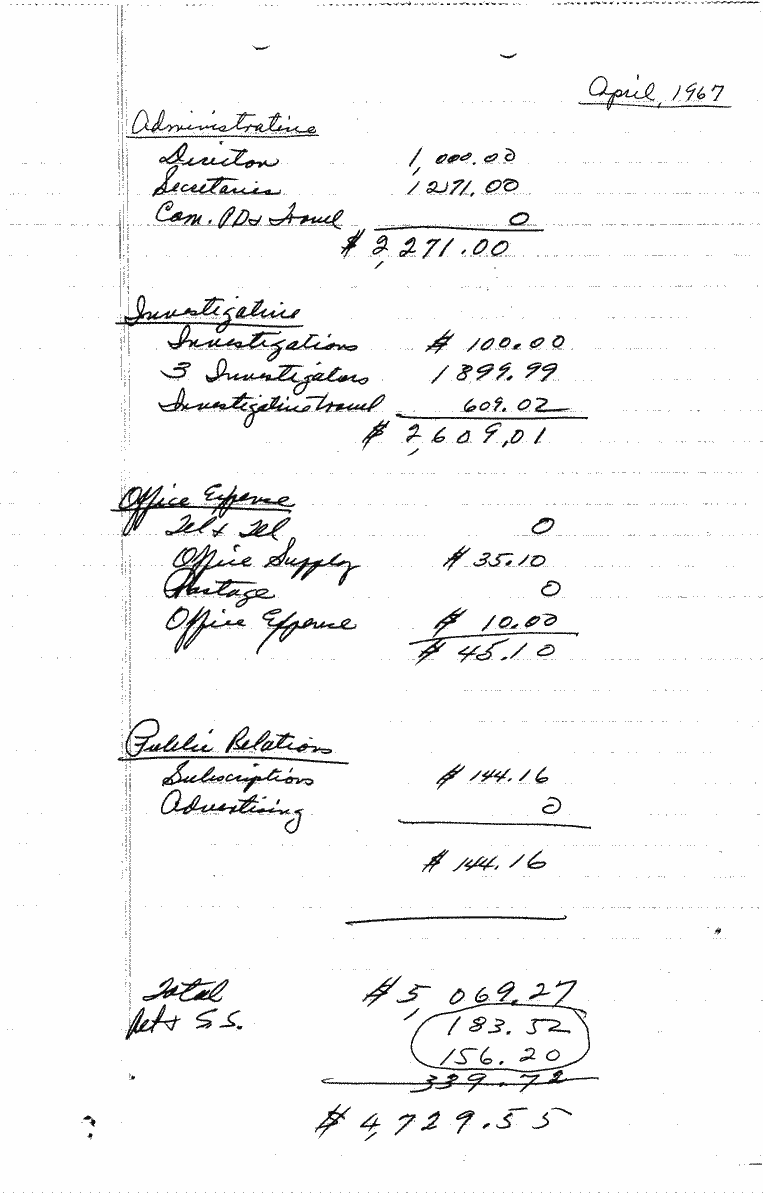 April, 1967
Administrative
Director 1,000.00
Secretaries 1271.00
Com. PD + Travel 0
$ 2,271.00
Investigative
Investigations $ 100.00
3 Investigators 1899.99
Investigative travel 609.02
$ 2,609.01
Office Expense
Tel + Tel 0
Office Supply $ 35.10
Postage 0
Office Expense $ 10.00
$ 45.10
Public Relations
Subscriptions $ 144.16
Advertising 0
$ 144.16
Total $ 5,069.27
Ret + S.S. 183.52
156.20
339.72
$ 4,729.55